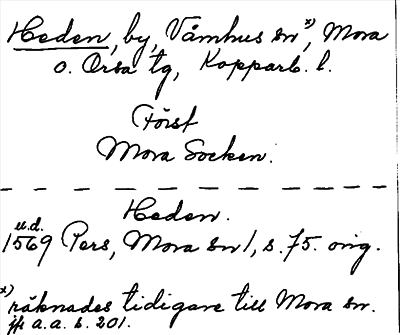 Heden, by, Våmhus sn x), Mora
o. Orsa tg, Kopparb. l.
Först
Mora Socken.
Heden.
u.d.
1569 Pers, Mora sn 1, s. 75. orig.
x) räknades tidigare till Mora sn.
jfr a.a. s. 201.